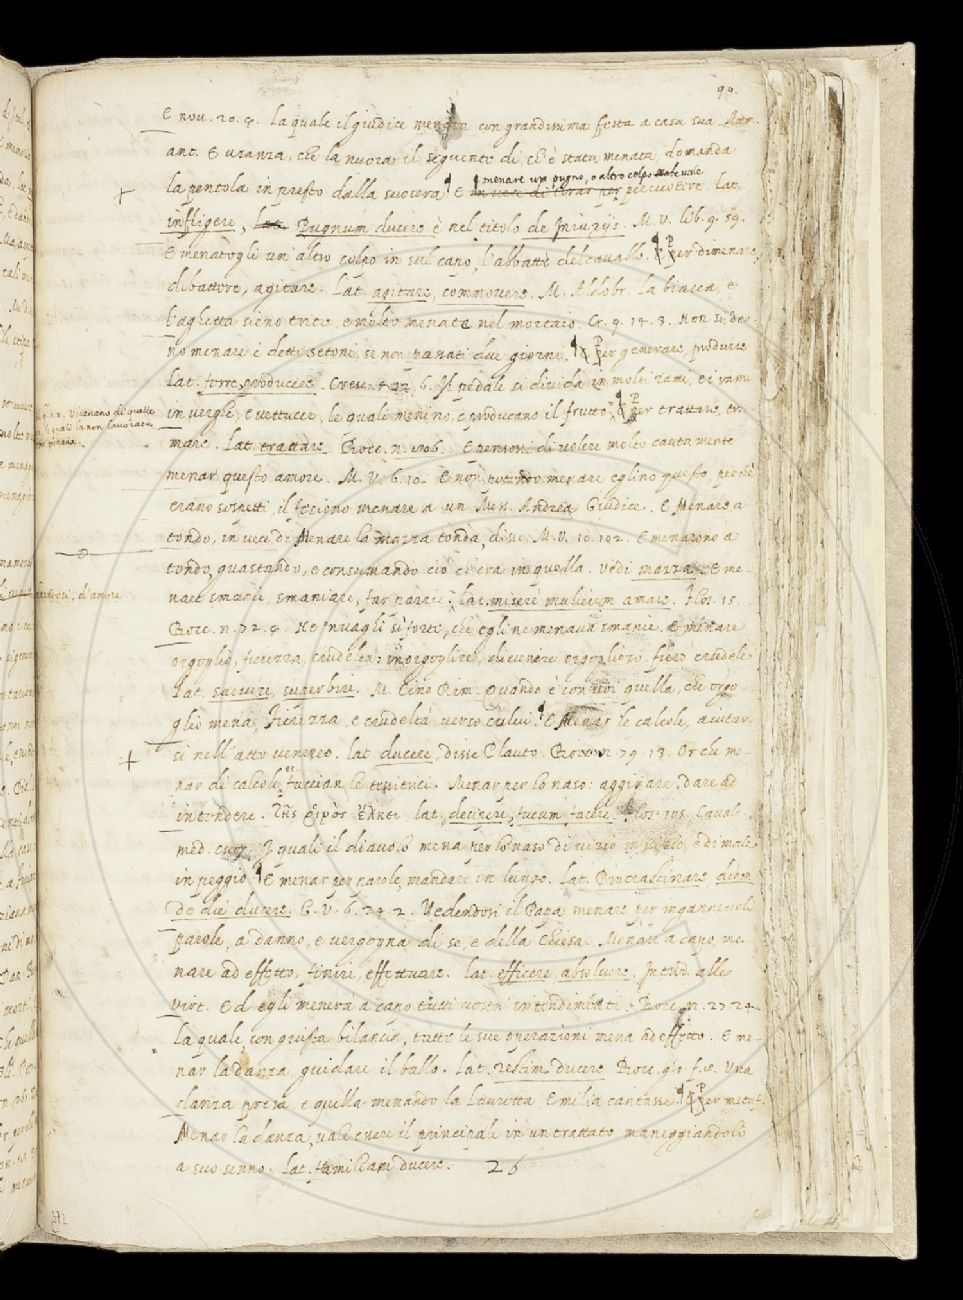 90.
E nov. 20. 9. la quale il giudice menata con grandissima festa a casa sua. Amm.
ant. E usanza, che la nuora il seguente dì, ch'è stata menata, domanda
menare un pugno, o altro colpo vale
la pentola in presto dalla suocera. E in vece di tirar per percuotere. Lat.
infligere, Lat. Pugnum ducere è nel titolo de Iniurijs. M. V. lib. 9. 59.
E menatogli un altro colpo in sul capo, l'abbatté del cavallo. ¶ Per dimenare,
dibattere, agitare. Lat. agitare, commovere. M. Aldobr. La biacca, e
l'aglietta sieno trite, e molto menate nel mortaio. Cr. 9. 14. 3. Non si deo-
no menare i detti setoni, se non passati due giorni. ¶ Per generare, produrre
Lat. ferre, producere. Cresc. 6. Il pedale si divida in molti rami, e i rami
in verghe, e vettucce, le quali menino, e producano il frutto. ¶ Per trattare, tra-
mare. Lat. trattare. Bocc. n. E pensossi di volere molto cautamente
menar questo amore. M. V. 6. 10. E non potendo menare eglino questo, perchè
erano sospetti, il feciono menare a un Mess. Andrea Giudice. E Menare a
tondo, in vece di Menare la mazza tonda, disse M. V. 10. 102. E menarono a
tondo, guastando, e consumando ciò ch'era in quella. Vedi mazza. E me-
nare smanie, smaniare, far pazzie. Lat. misere mulierem amare. Flos. 15.
d'amore
Bocc. n. 72. 9. Ne invaghì sì forte, che egli ne menava smanie. E menare
orgoglio, fierezza, crudeltà: inorgoglire, divenire orgoglioso, fiero crudele
Lat. saevire, superbire. M. Cino Rim. Quando è con voi quella, che orgo-
glio mena, Fierezza, e crudeltà verso colui. E Menar le calcole, aiutar-
si nell'atto venereo. Lat. ducere, disse Plauto. Bocc. n. 79. 13. Or che me-
nar di calcole, fuccian le tessitrici. Menar per lo naso: aggirare, dare ad
intendere. Τῆς ῥινὸς ἕλκει, lat. decipere, fucum facere. Flos. 105. Caval-
med. cuor. I quali il diavolo mena per lo naso di vizio in vizio, e di male
in peggio. ¶ E menar per parole, mandare in lungo. Lat. Procrastinare diem
de die ducere. G. V. 6. 24. 2. Vedendosi il Papa menare per ingannevoli
parole, a danno, e vergogna di se, e della Chiesa. Menare a capo, me-
nare ad effetto, finire, effettuare. Lat. efficere absolvere. Introd. alle
virt. Ed egli menerà a capo tutti vostri intendimenti. Bocc. n. 27. 24.
La quale, con giusta bilancia, tutte le sue operazioni mena ad effetto. E me-
nar la danza, guidare il ballo. Lat. restim ducere. Bocc. g. 1. f. 10. Una
danza presa, e quella menando la Lauretta Emilia cantasse. ¶ Per metaf.
Menar la danza, vale essere il principale in un trattato maneggiandolo
a suo senno. Lat. familiam ducere. 26